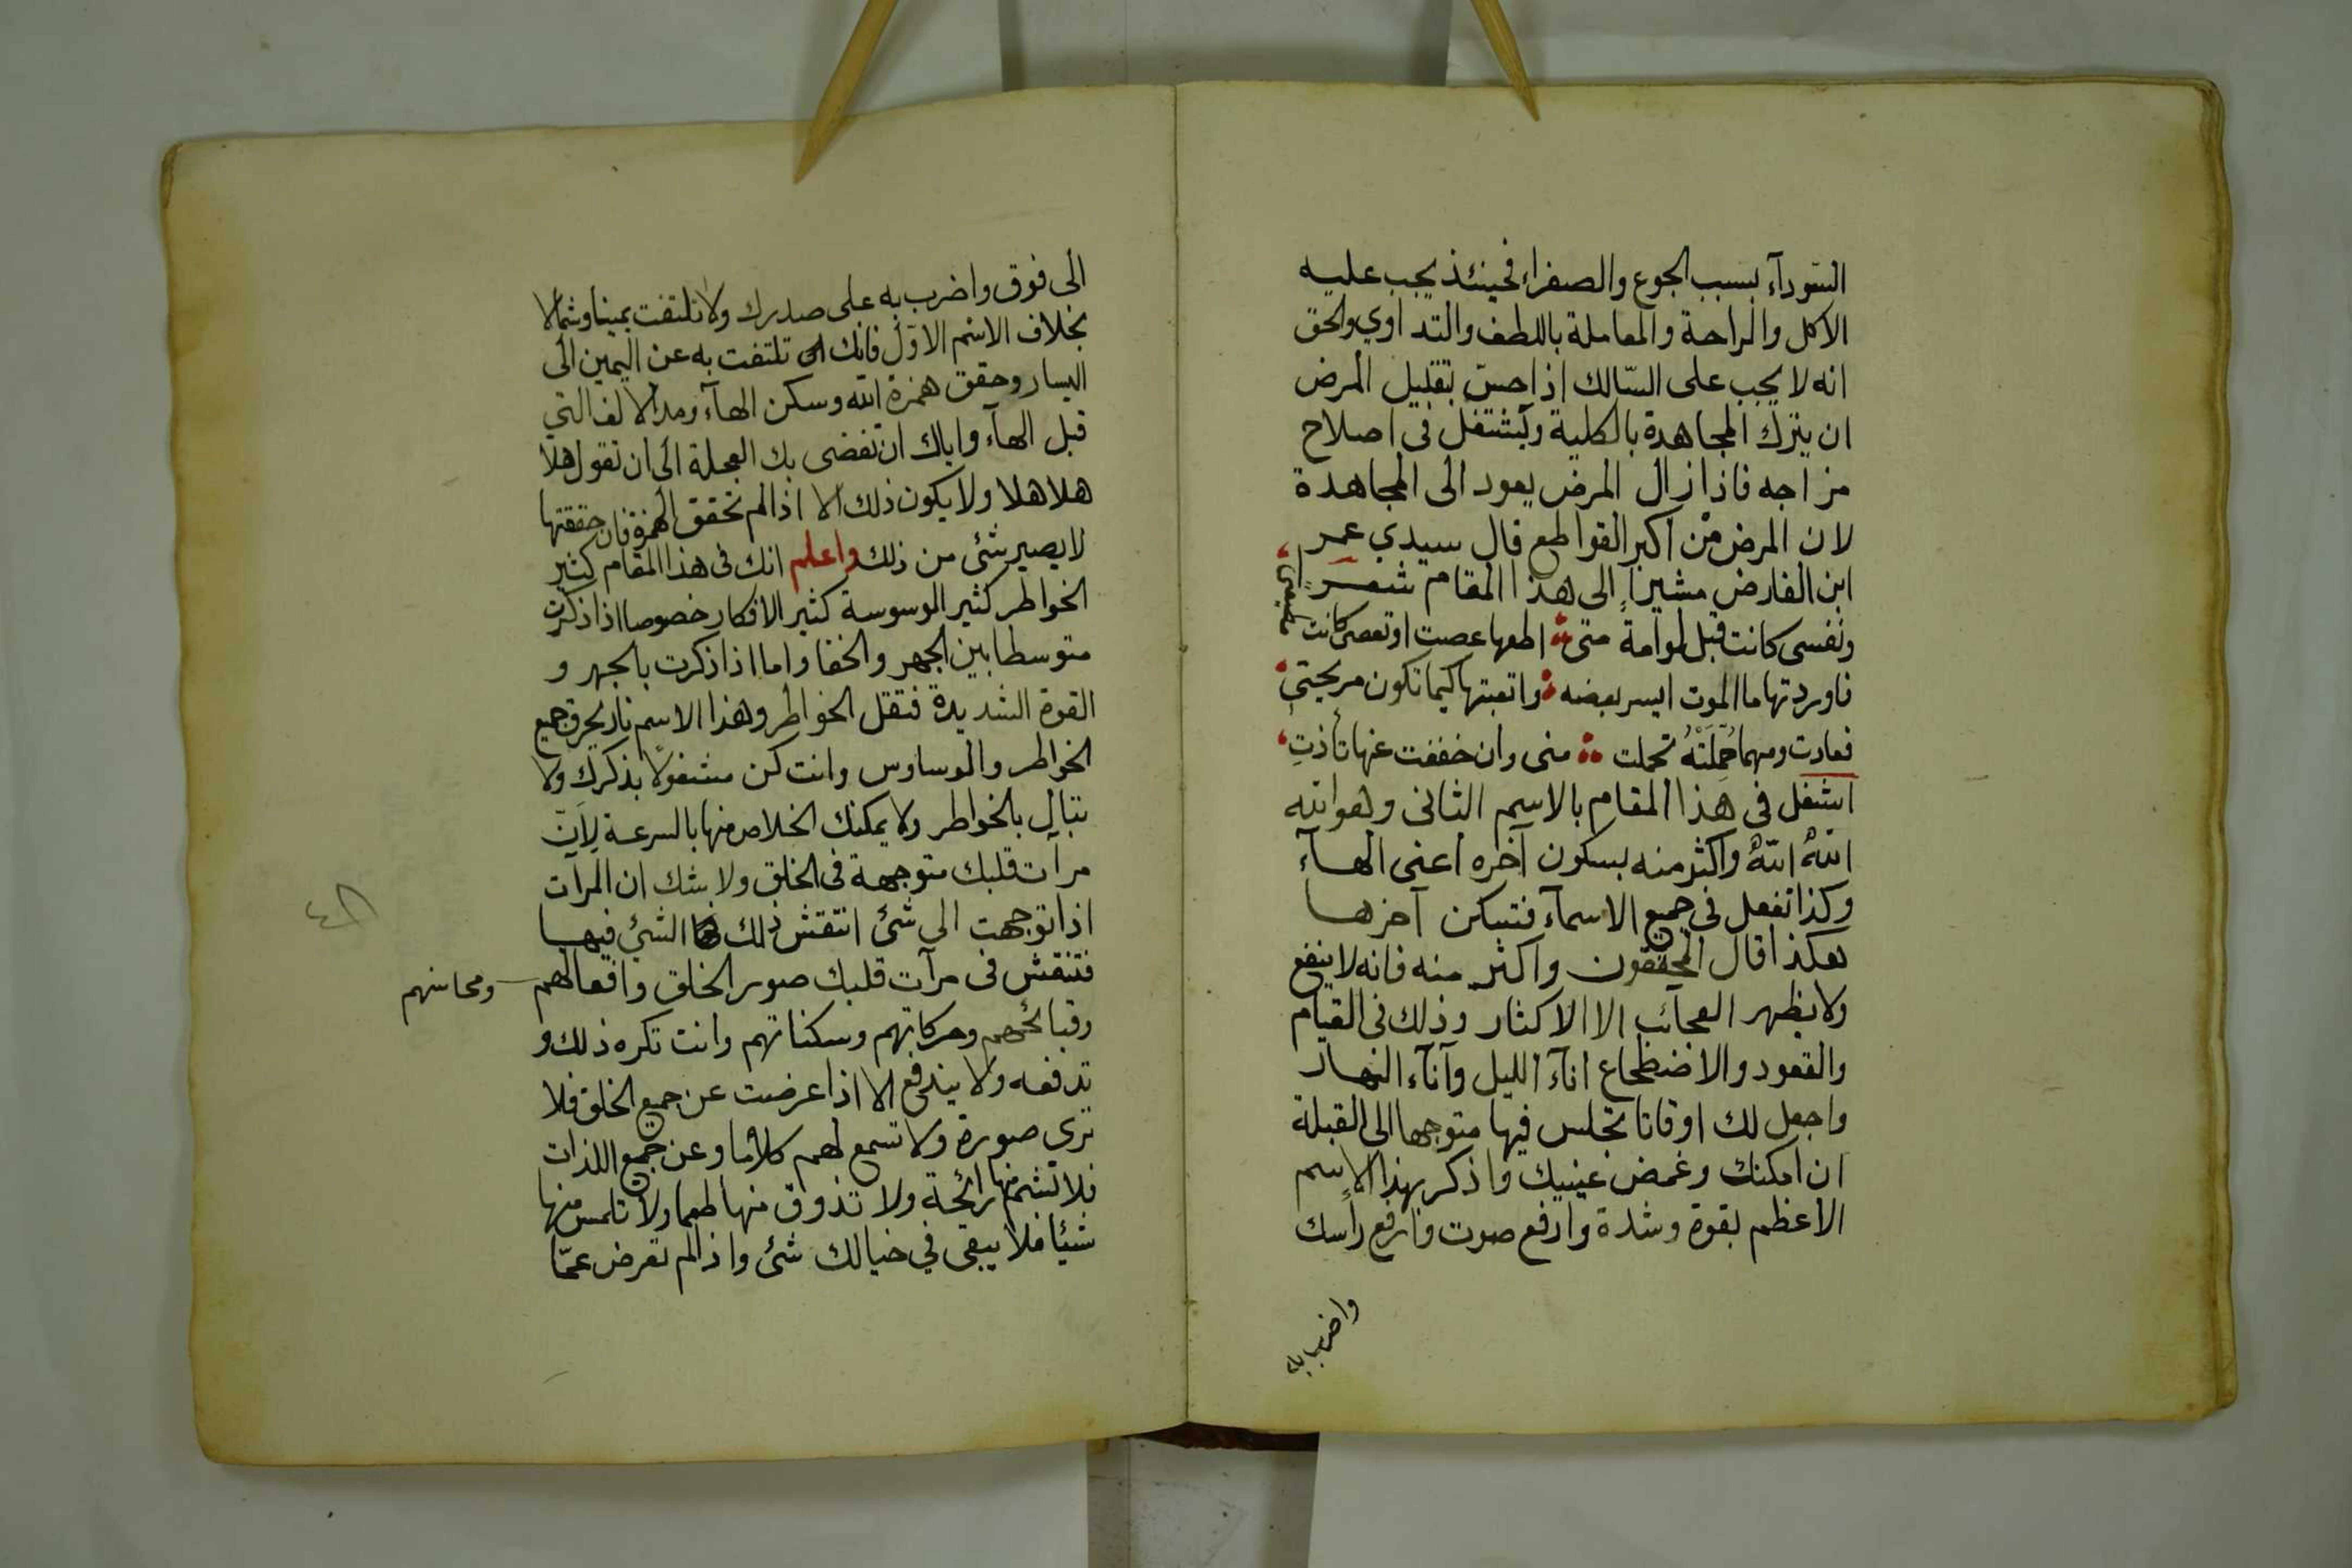 السّودآء بسبب الجوع والصفراء فحينئذ يجب عليه
الاكل والراحة والمعاملة باللطف والتداوي والحق
انه لا يجب على السّالك اذا حسّ بقليل المرض
ان يترك المجاهدة بالكلية ويشتغل فى اصلاح
مزاجه فاذا زال المرض يعود الى المجاهدة
لان المرض من اكبر القواطع قال سيدي عمر
ابن الفارض مشيراً الى هذا المقام شعر
ونفسى كانت قبل لوامة متى اطعها عصت او تعصى كانت مطيعتى
فاوردتها ما الموت ايسر بعضه واتعبتها كيما تكون مريحتى
فعادت ومهما حُمِّلَتْهُ تحملت منى وان خففت عنها تأذتِ
اشتغل فى هذا المقام بالاسم الثانى وهو الله
اللهْ اللهْ واكثر منه بسكون آخره اعنى الهآء
وكذا تفعل فى جميع الاسمآء فتسكن آخرها
هكذا قال المحققون واكثر منه فانه لا ينفع
ولا يظهر العجائب الا الاكثار وذلك فى القيام
والقعود والاضطجاع انآء الليل وآنآء النهار
واجعل لك اوقاتا تجلس فيها متوجها الى القبلة
ان امكنك وغمض عينيك واذكر بهذا الاسم
الاعظم بقوة وشدة وارفع صوت وارفع راسك
واضرب به
الى فوق واضرب به على صدرك ولا تلتفت يمينا وشمالا
بخلاف الاسم الاوّل فانك تلتفت به عن اليمين الى
اليسار وحقق همزة الله وسكن الهآء ومد الالف التي
قبل الهآء واياك ان تفضى بك العجلة الى ان تقول هلا
هلا هلا ولا يكون ذلك الا اذا لم تحقق الهمزة فان حققتها
لا يصير شئ من ذلك واعلم انك فى هذا المقام كثير
الخواطر كثير الوسوسة كثير الافكار خصوصا اذا ذكرت
متوسطا بين الجهر والخفا واما اذا ذكرت بالجهر و
القوة الشديدة فتقل الخواطر وهذا الاسم نار يحرق جميع
الخواطر والوساوس وانت كن مشغولًا بذكرك ولا
تبال بالخواطر ولا يمكنك الخلاص منها بالسرعة لِاَنّ
مرآت قلبك متوجهة فى الخلق ولا شك ان المرآت
اذا توجهت الى شئ انتقش ذلك الشئ فيها
فتنقش فى مرآت قلبك صور الخلق وافعالهم ومحاسنهم
وقبائحهم وحركاتهم وسكناتهم وانت تكره ذلك و
تدفعه ولا يندفع الا اذا عرضت عن جميع الخلق فلا
ترى صورة ولا تسمع لهم كلاما وعن جميع اللذات
فلا تشم منها رائحة ولا تذوق منها طعما ولا تلمس منها
شيئا فلا يبقى في خيالك شئ واذا لم تعرض عمّا